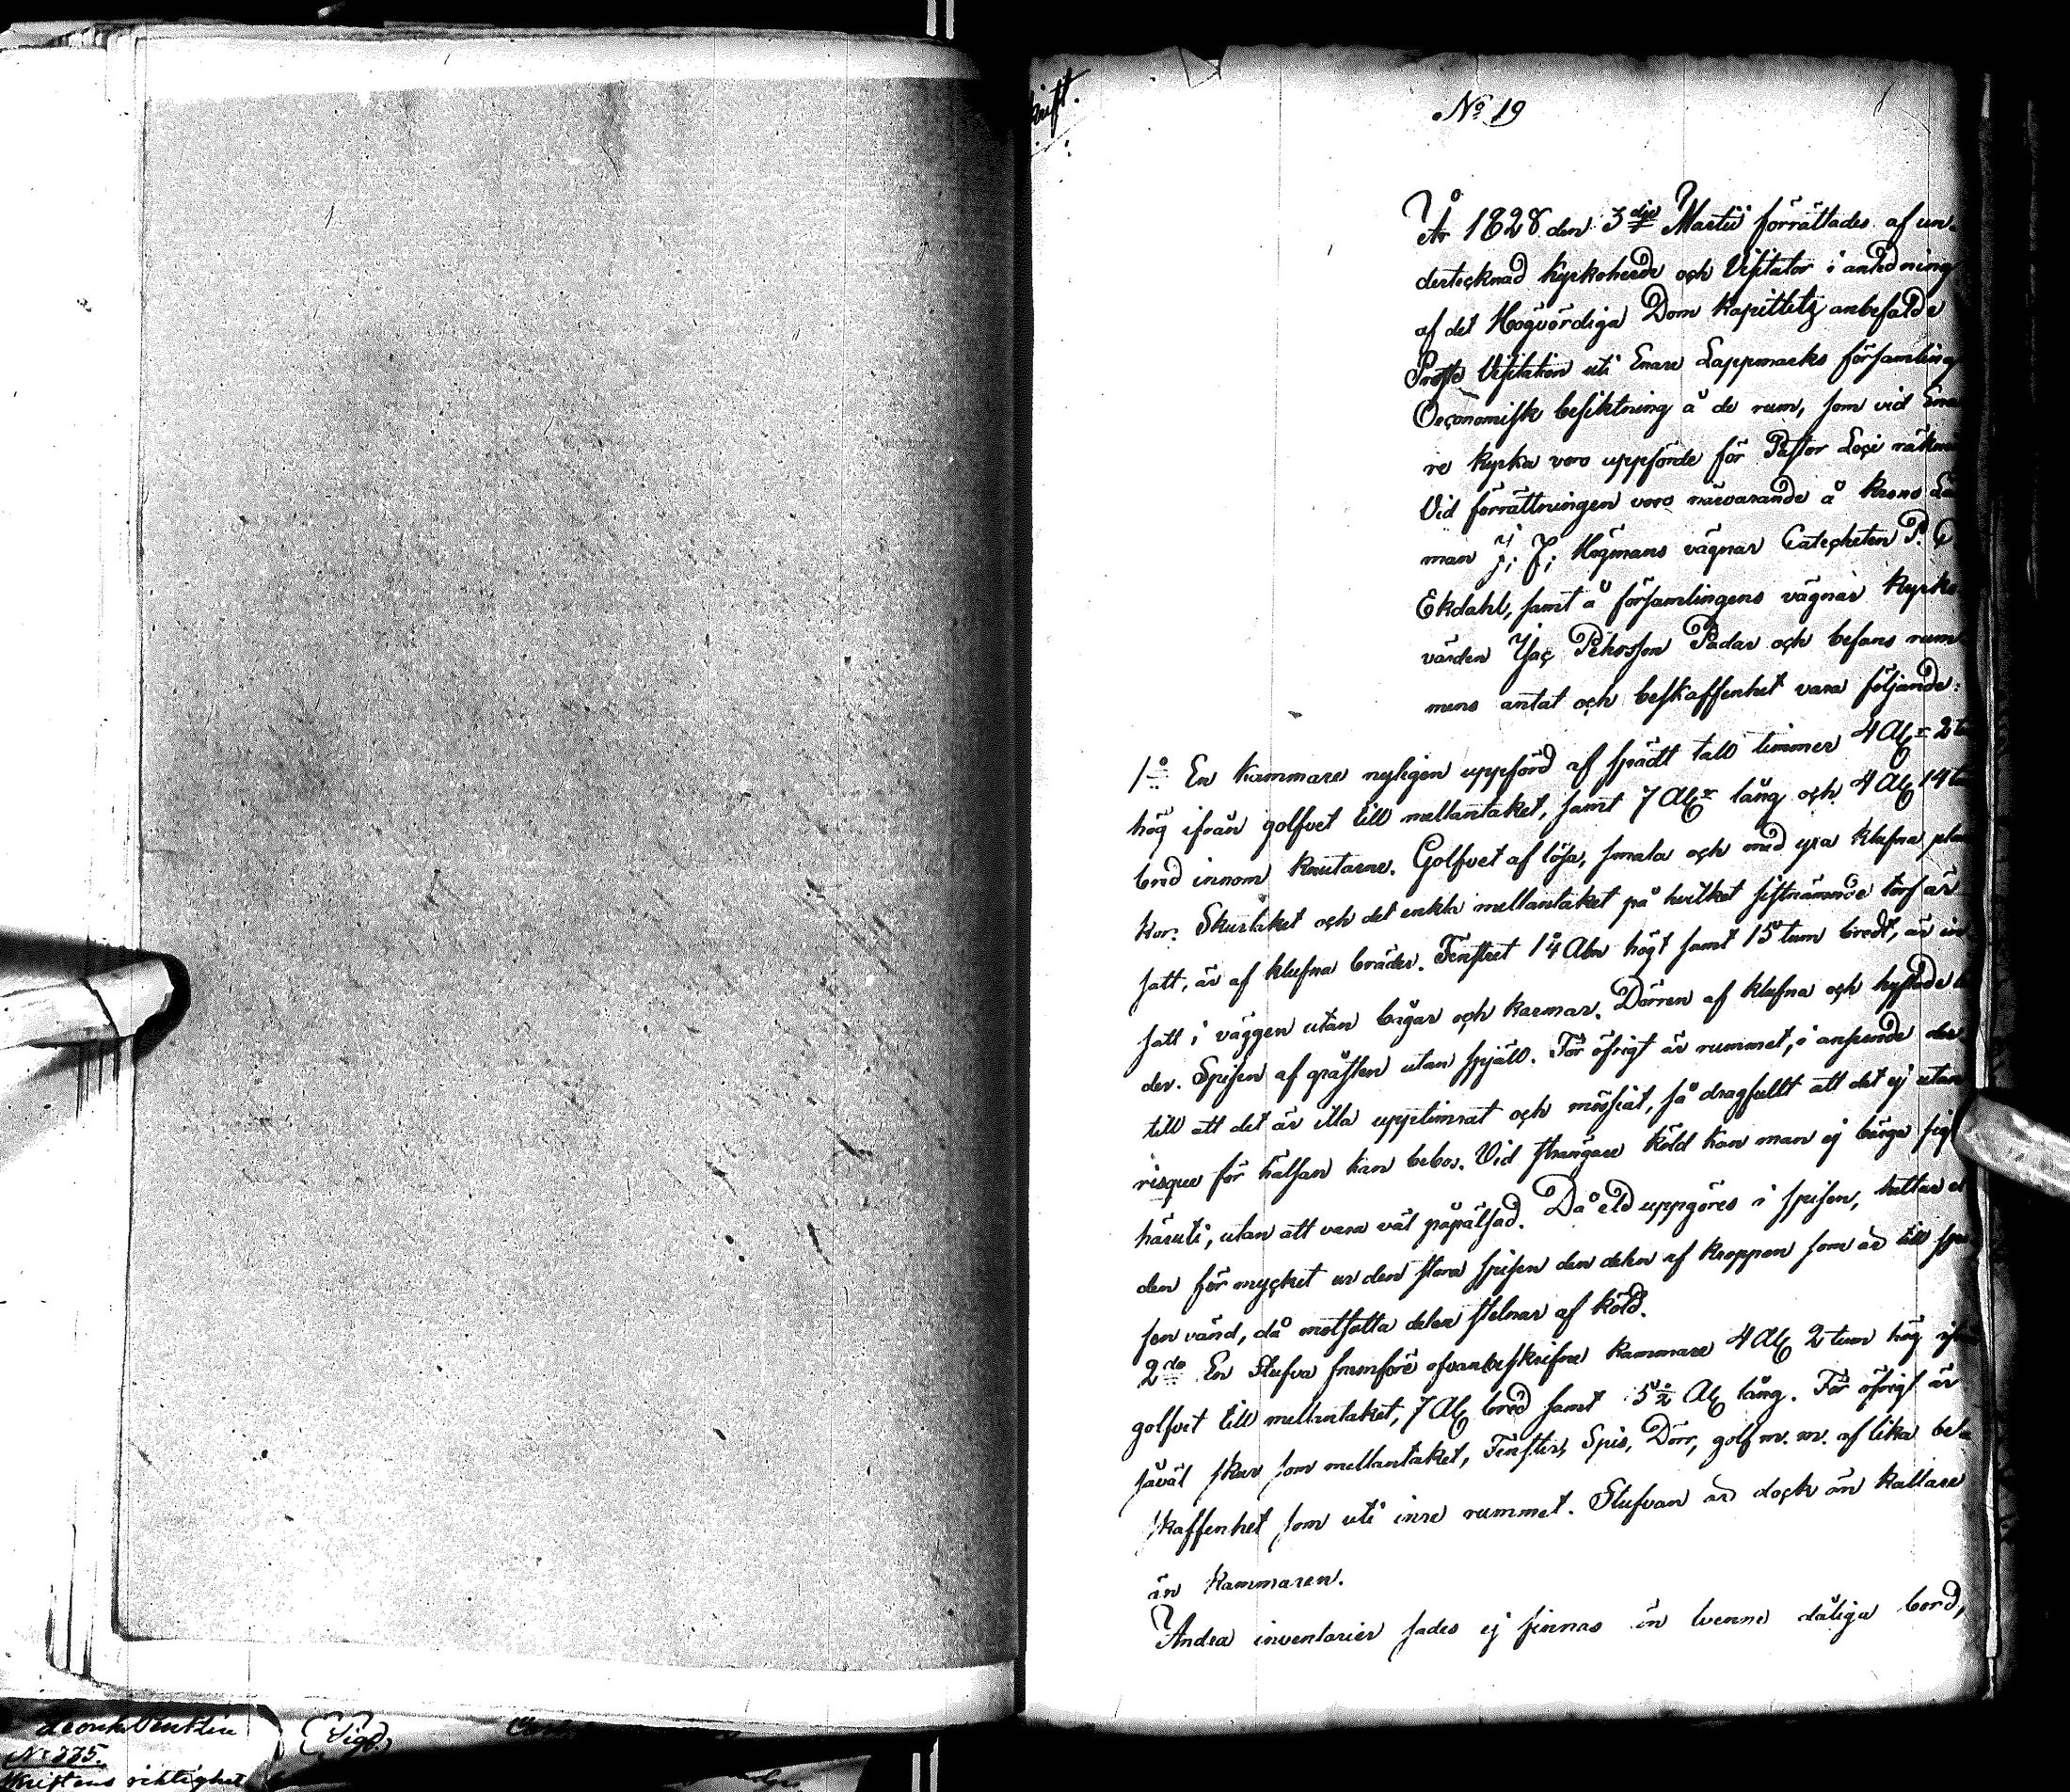 krift.
No 19
År 1828 den 3dje Martii förrättades af un-
dertecknad Kyrkoherde och Visitator i anledning
af det Högvördiga Dom Kapitlets anbefalde
Prosts Visitation uti Enare Lappmarks församling
Oeconomisk besiktning å de rum, som vid Ena
re kyrka voro uppförde för Pastor Loci räkn
Vid förrättningen voro närvarande å Krono Lä
man J. J. Högmans vägnar Catecheten P.
Ekdahl, samt å församlingens vägnar Kyrko
värden Isac Pehrsson Padar och befans rum-
mens antal och beskaffenhet vara följande:
1o En Kammare nyligen uppförd af spädt tall timmer 4 Aln 2 t
hög ifrån golfvet till mellantaket, samt 7 Alnr lång och 4 Aln 14 t
bred innom knutarne. Golfvet af lösa, smala och med yxa klufna plan
kor. Skurtaket och det enkla mellantaket på hvilket sistnämnde torf är
satt, är af klufna bräder. Fenstret 1¼ Aln högt samt 15 tum bredt, är in
satt i väggen utan bågar och karmar. Dörren af klufna och hyflade b
der. Spisen af gråsten utan spjäll. För öfrigt är rummet, i anseende der
till att det är illa upptimrat och mossat, så dragfullt att det ej utan
risque för hälsan kan bebos. Vid strängare köld kan man ej berga sig
häruti, utan att vara väl påpälsad. Då eld uppgöres i spisen, hettar el
den för mycket ur den stora spisen den delen af kroppen som är till spi
sen vänd, då motsatta delen stelnar af köld.
2do En Stufva framföre ofvanbeskrifne kammare 4 Aln 2 tum hög ifrån
golfvet till mellantaket, 7 Aln bred samt 5½ Aln lång. För öfrigt är
såväl skur som mellantaket, Fenster, Spis, Dörr, golf m. m. af lika be
skaffenhet som uti inre rummet. Stufvan är dock än kallare
än Kammaren.
Andra inventarier sades ej finnas än tvenne dåliga bord,
No 335.
skriftens riktighet